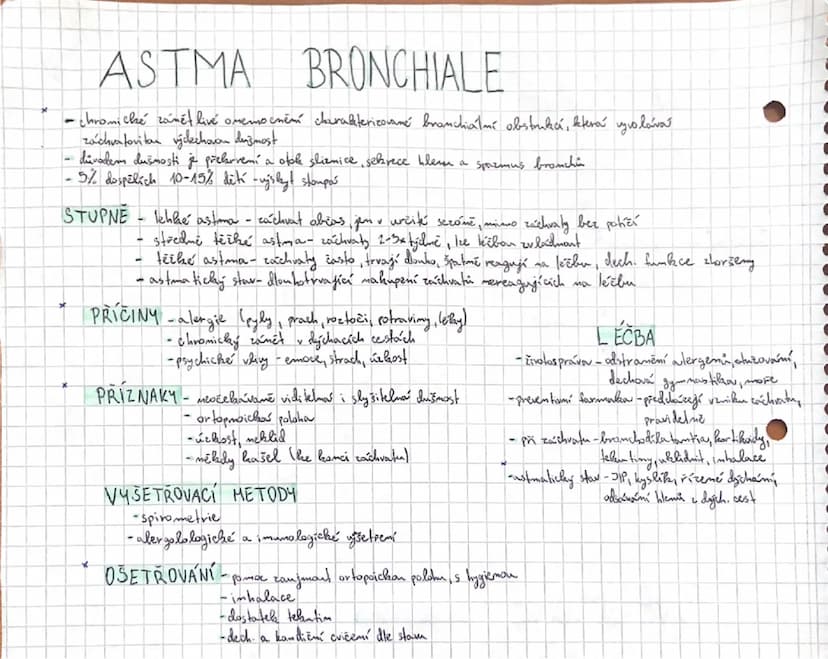 ASTMA BRONCHIALE
- chronické zánětlivé onemocnění charakterizované bronchiální obstrukcí, která vyvolává
záchvatovitou výdechovou dušnost
- důvodem dušnosti je překrvení a otok sliznice, sekrece hlenu a spazmus bronchů
- 5% dospělých 10-15% dětí - výskyt stoupá
STUPNĚ - lehké astma - záchvat občas, jen v určité sezóně, mimo záchvaty bez potíží
- středně těžké astma - záchvaty 2-3x týdně, lze léčbou zvládnout
- těžké astma - záchvaty často, trvají dlouho, špatně reagují na léčbu, dech. funkce zhoršeny
- astmatický stav - dlouhotrvající nakupení záchvatů nereagujících na léčbu
PŘÍČINY - alergie (pyly, prach, roztoči, potraviny, léky)
- chronický zánět v dýchacích cestách
- psychické vlivy - emoce, strach, úzkost
PŘÍZNAKY - neočekávaně viditelná i slyšitelná dušnost
- ortopnoická poloha
- úzkost, neklid
- někdy kašel (ke konci záchvatu)
VYŠETŘOVACÍ METODY
- spirometrie
- alergolologické a imunologické vyšetření
OŠETŘOVÁNÍ - pomoc zaujmout ortopoickou polohu, s hygienou
- inhalace
- dostatek tekutin
- dech. a kondiční cvičení dle stavu
LÉČBA
- životospráva - odstranění alergenů, otužování,
dechová gymnastika, moře
- preventivní farmaka - předcházejí vzniku záchvatu,
pravidelně
- při záchvatu - bronchodilatantia, kortikoidy,
tekutiny, uklidnit, inhalace
- astmatický stav - JIP, kyslík, řízené dýchání,
odsávání hlenů z dých. cest